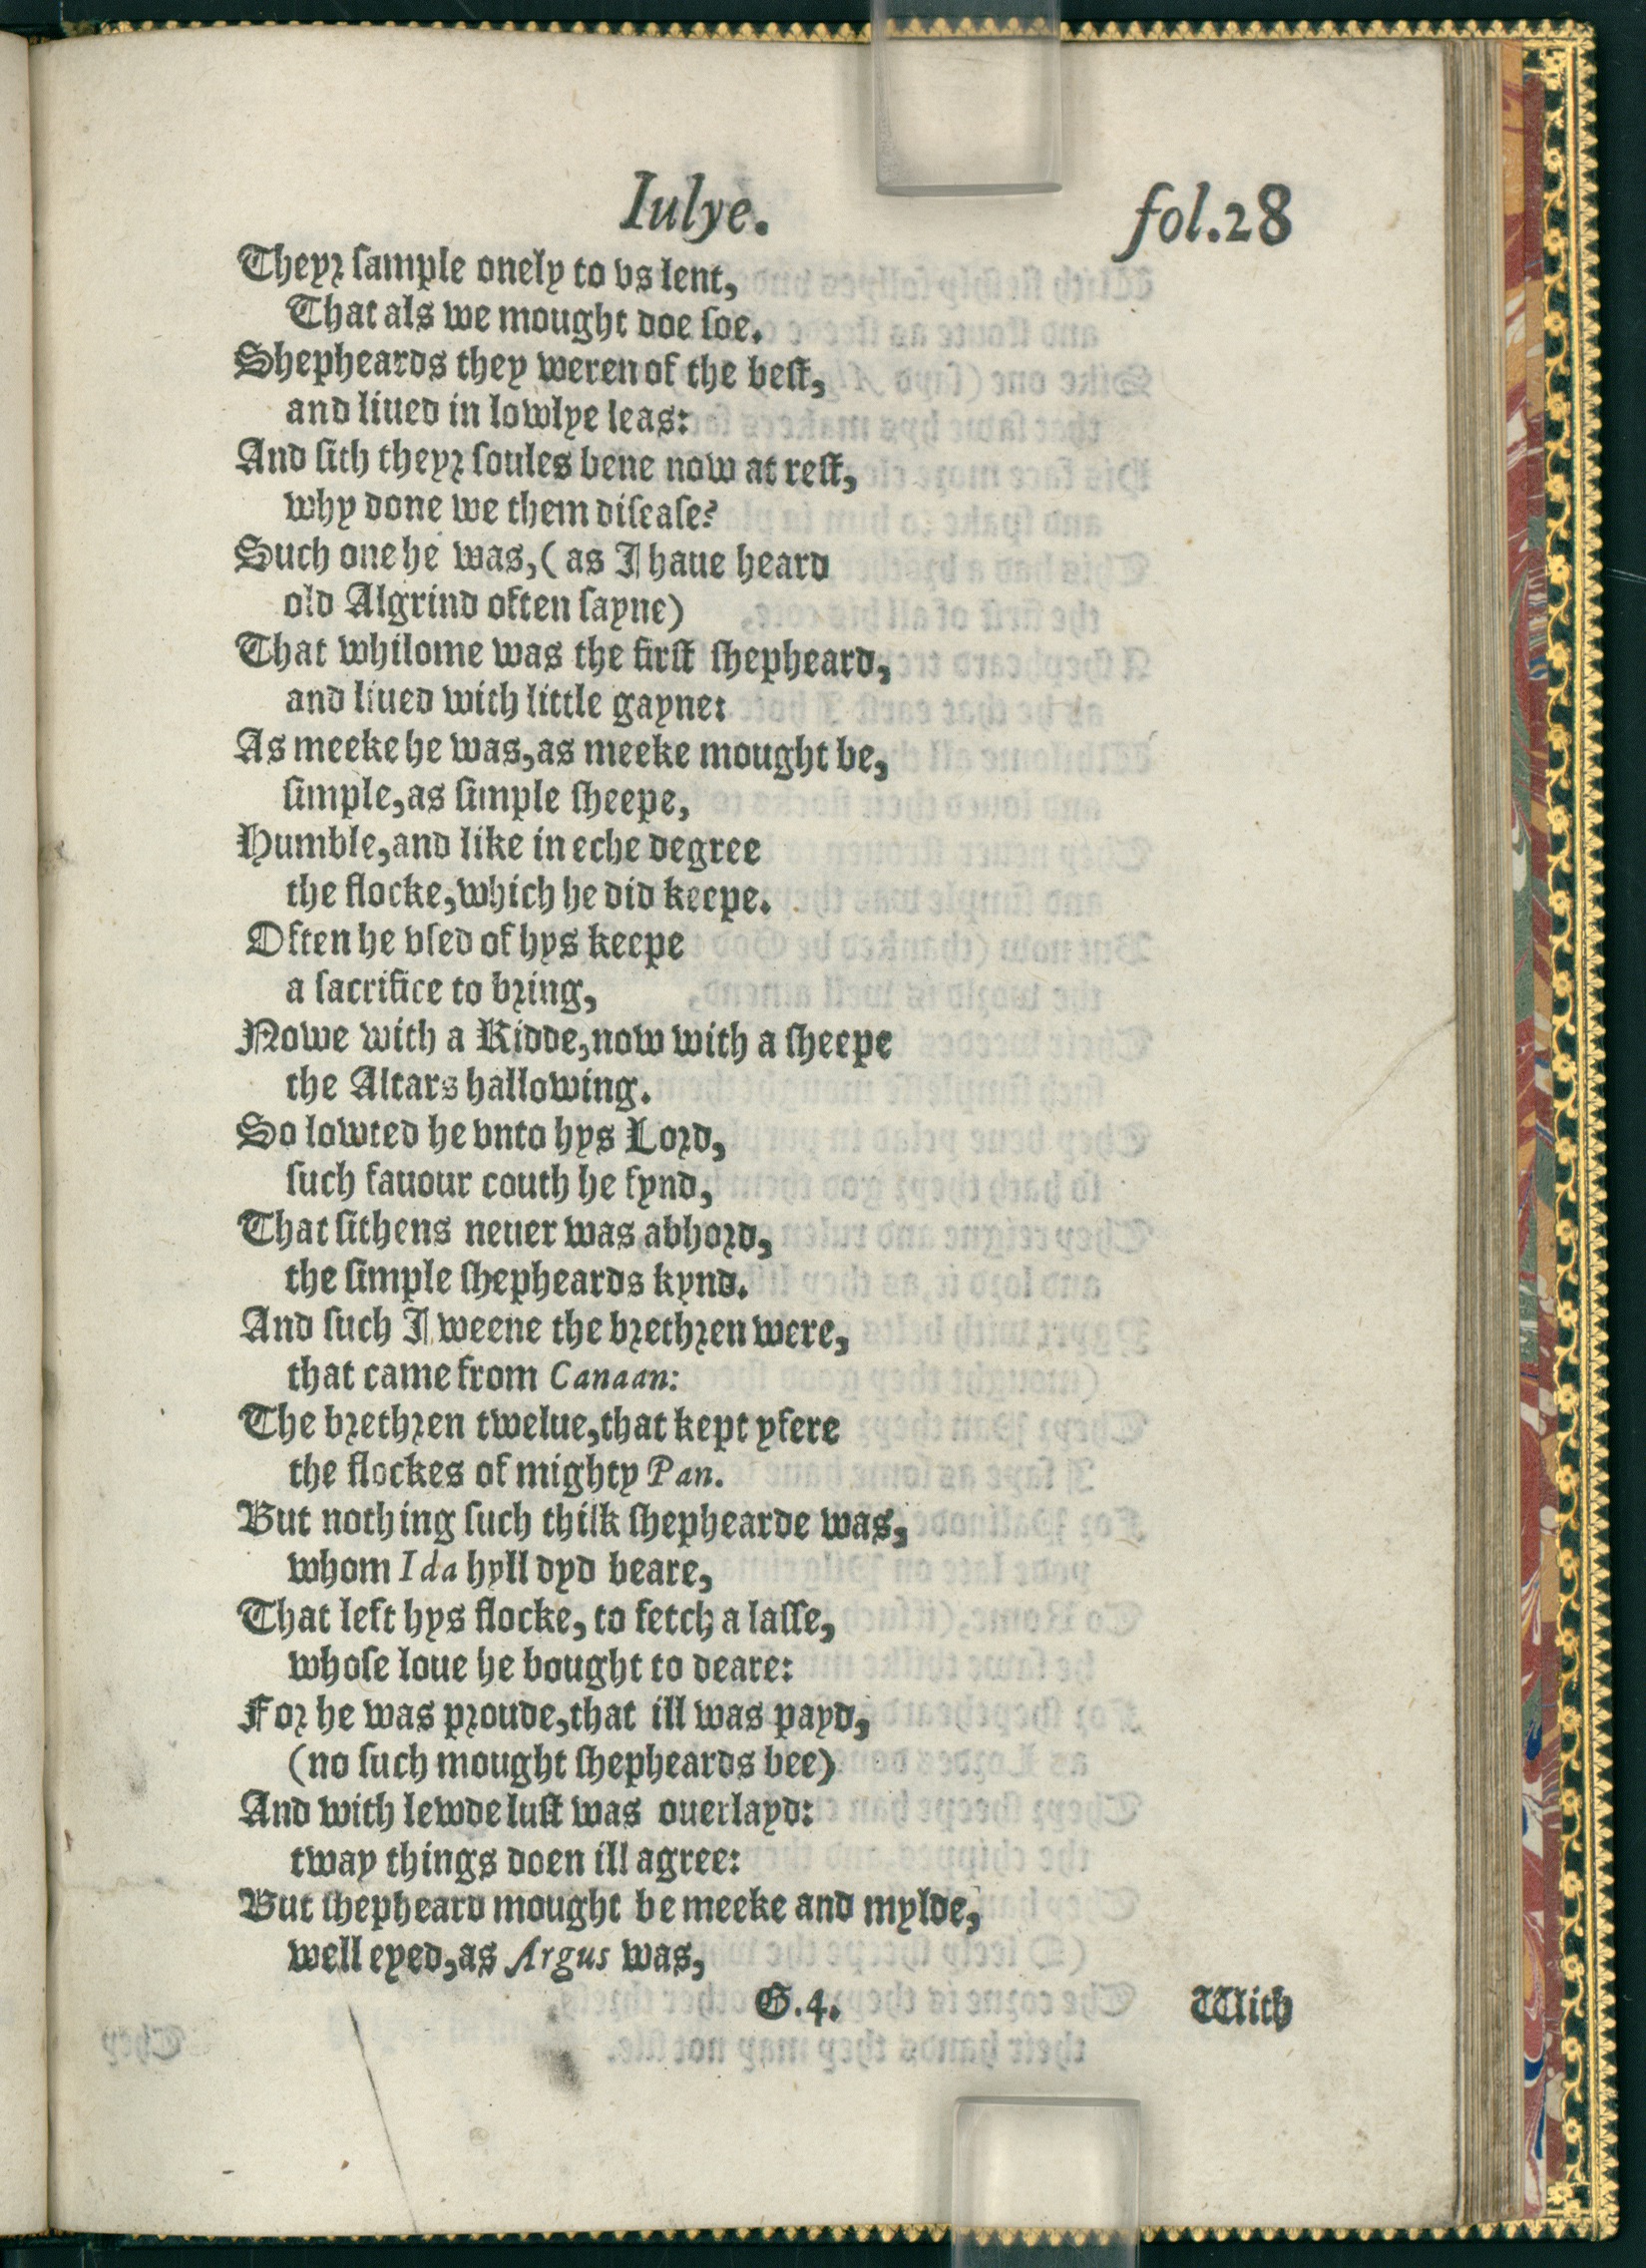 Iulye. fol.28
Theyr ſample onely to vs lent,
That als we mought doe ſoe.
Shepheards they weren of the beſt,
and liued in lowlye leas:
And ſith theyr ſoules bene now at reſt,
why done we them diſeaſe?
Such one he was, (as I haue heard
old Algrind often ſayne)
That whilome was the firſt ſhepheard,
and liued with little gayne:
As meeke he was, as meeke mought be,
ſimple, as ſimple ſheepe,
Humble, and like in eche degree
the flocke, which he did keepe.
Often he vſed of hys keepe
a ſacrifice to bring,
Nowe with a Kidde, now with a ſheepe
the Altars hallowing.
So lowted he vnto hys Lord,
ſuch fauour couth he fynd,
That ſithens neuer was abhord,
the ſimple ſhepheards kynd.
And ſuch I weene the brethren were,
that came from Canaan:
The brethren twelue, that kept yfere
the flockes of mighty Pan.
But nothing ſuch thilk ſhephearde was,
whom Ida hyll dyd beare,
That left hys flocke, to fetch a laſſe,
whoſe loue he bought to deare:
For he was proude, that ill was payd,
(no ſuch mought ſhepheards bee)
And with lewde luſt was ouerlayd:
tway things doen ill agree:
But ſhepheard mought be meeke and mylde,
well eyed, as Argus was,
G.4. With